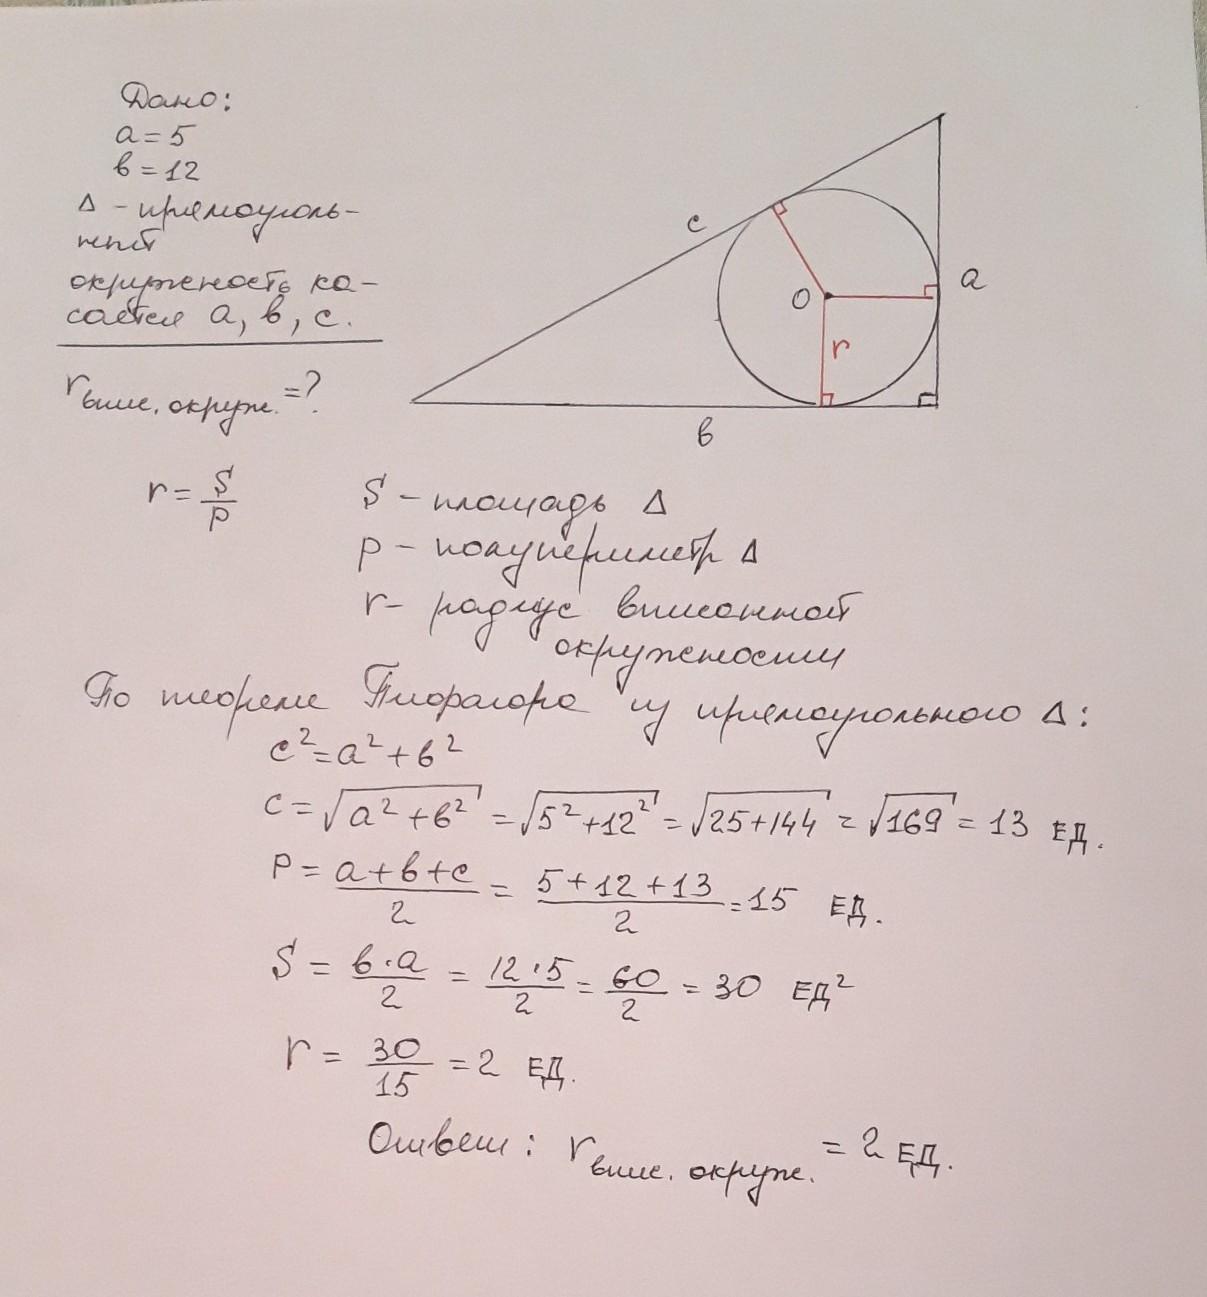 Дано:
a = 5
в = 12
Δ - прямоуголь-
ный
окружность ка-
сается a, в, c.
r впис. окруж. = ?
c
a
O
r
в
r = S/p
S - площадь Δ
p - полупериметр Δ
r - радиус вписанной
окружности
По теореме Пифагора из прямоугольного Δ:
c² = a² + в²
c = √(a² + в²) = √(5² + 12²) = √(25 + 144) = √169 = 13 ЕД.
P = (a + в + c)/2 = (5 + 12 + 13)/2 = 15 ЕД.
S = (в · a)/2 = (12 · 5)/2 = 60/2 = 30 ЕД²
r = 30/15 = 2 ЕД.
Ответ: r впис. окруж. = 2 ЕД.